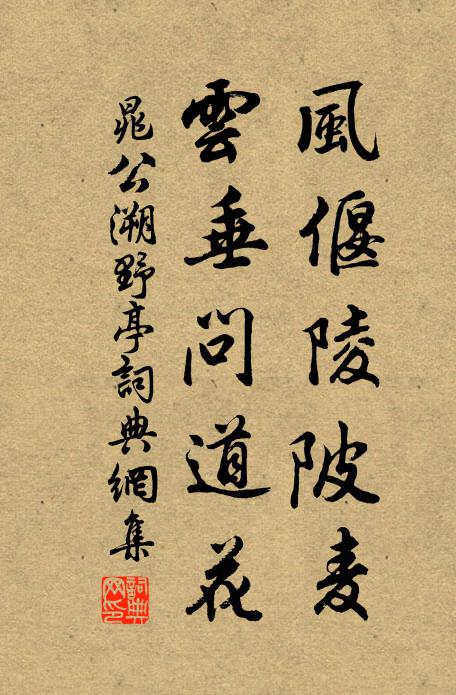 風偃陵陂麦
雲垂問道花
晁公溯野亭詞典網集
詞典网印